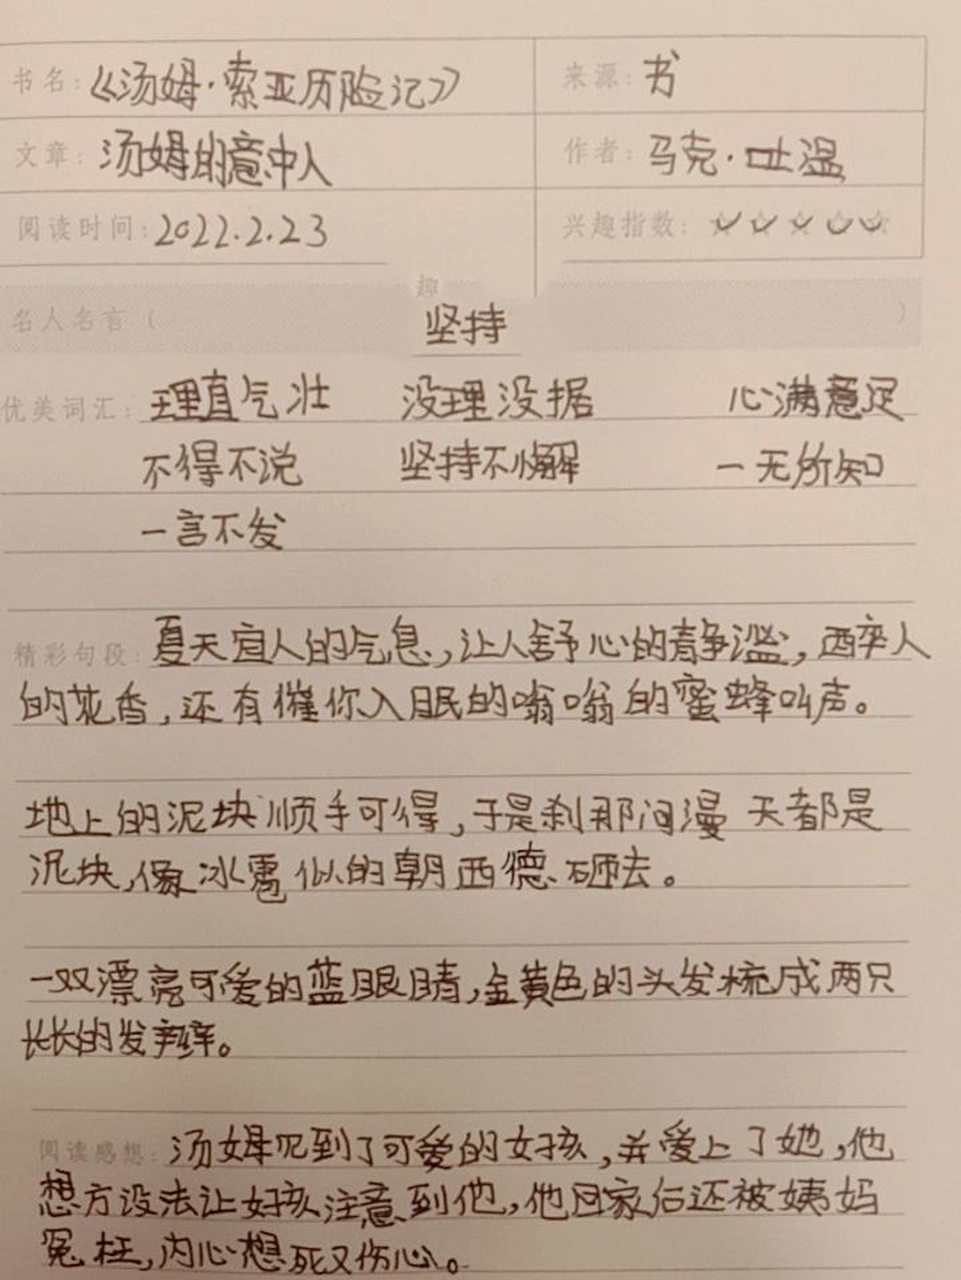 书名:《汤姆·索亚历险记》 来源:书
文章:汤姆的意中人 作者:马克·吐温
阅读时间:2022.2.23 兴趣指数:
趣
名人名言( 坚持 )
优美词汇:理直气壮 没理没据 心满意足
不得不说 坚持不懈 一无所知
一言不发
精彩句段:夏天宜人的气息,让人舒心的静谧,醉人
的花香,还有催你入眠的嗡嗡的蜜蜂叫声。
地上的泥块顺手可得,于是刹那间漫天都是
泥块,像冰雹似的朝西德砸去。
一双漂亮可爱的蓝眼睛,金黄色的头发梳成两只
长长的发辫。
阅读感想:汤姆见到了可爱的女孩,并爱上了她,他
想方设法让女孩注意到他,他回家后还被姨妈
冤枉,内心想死又伤心。